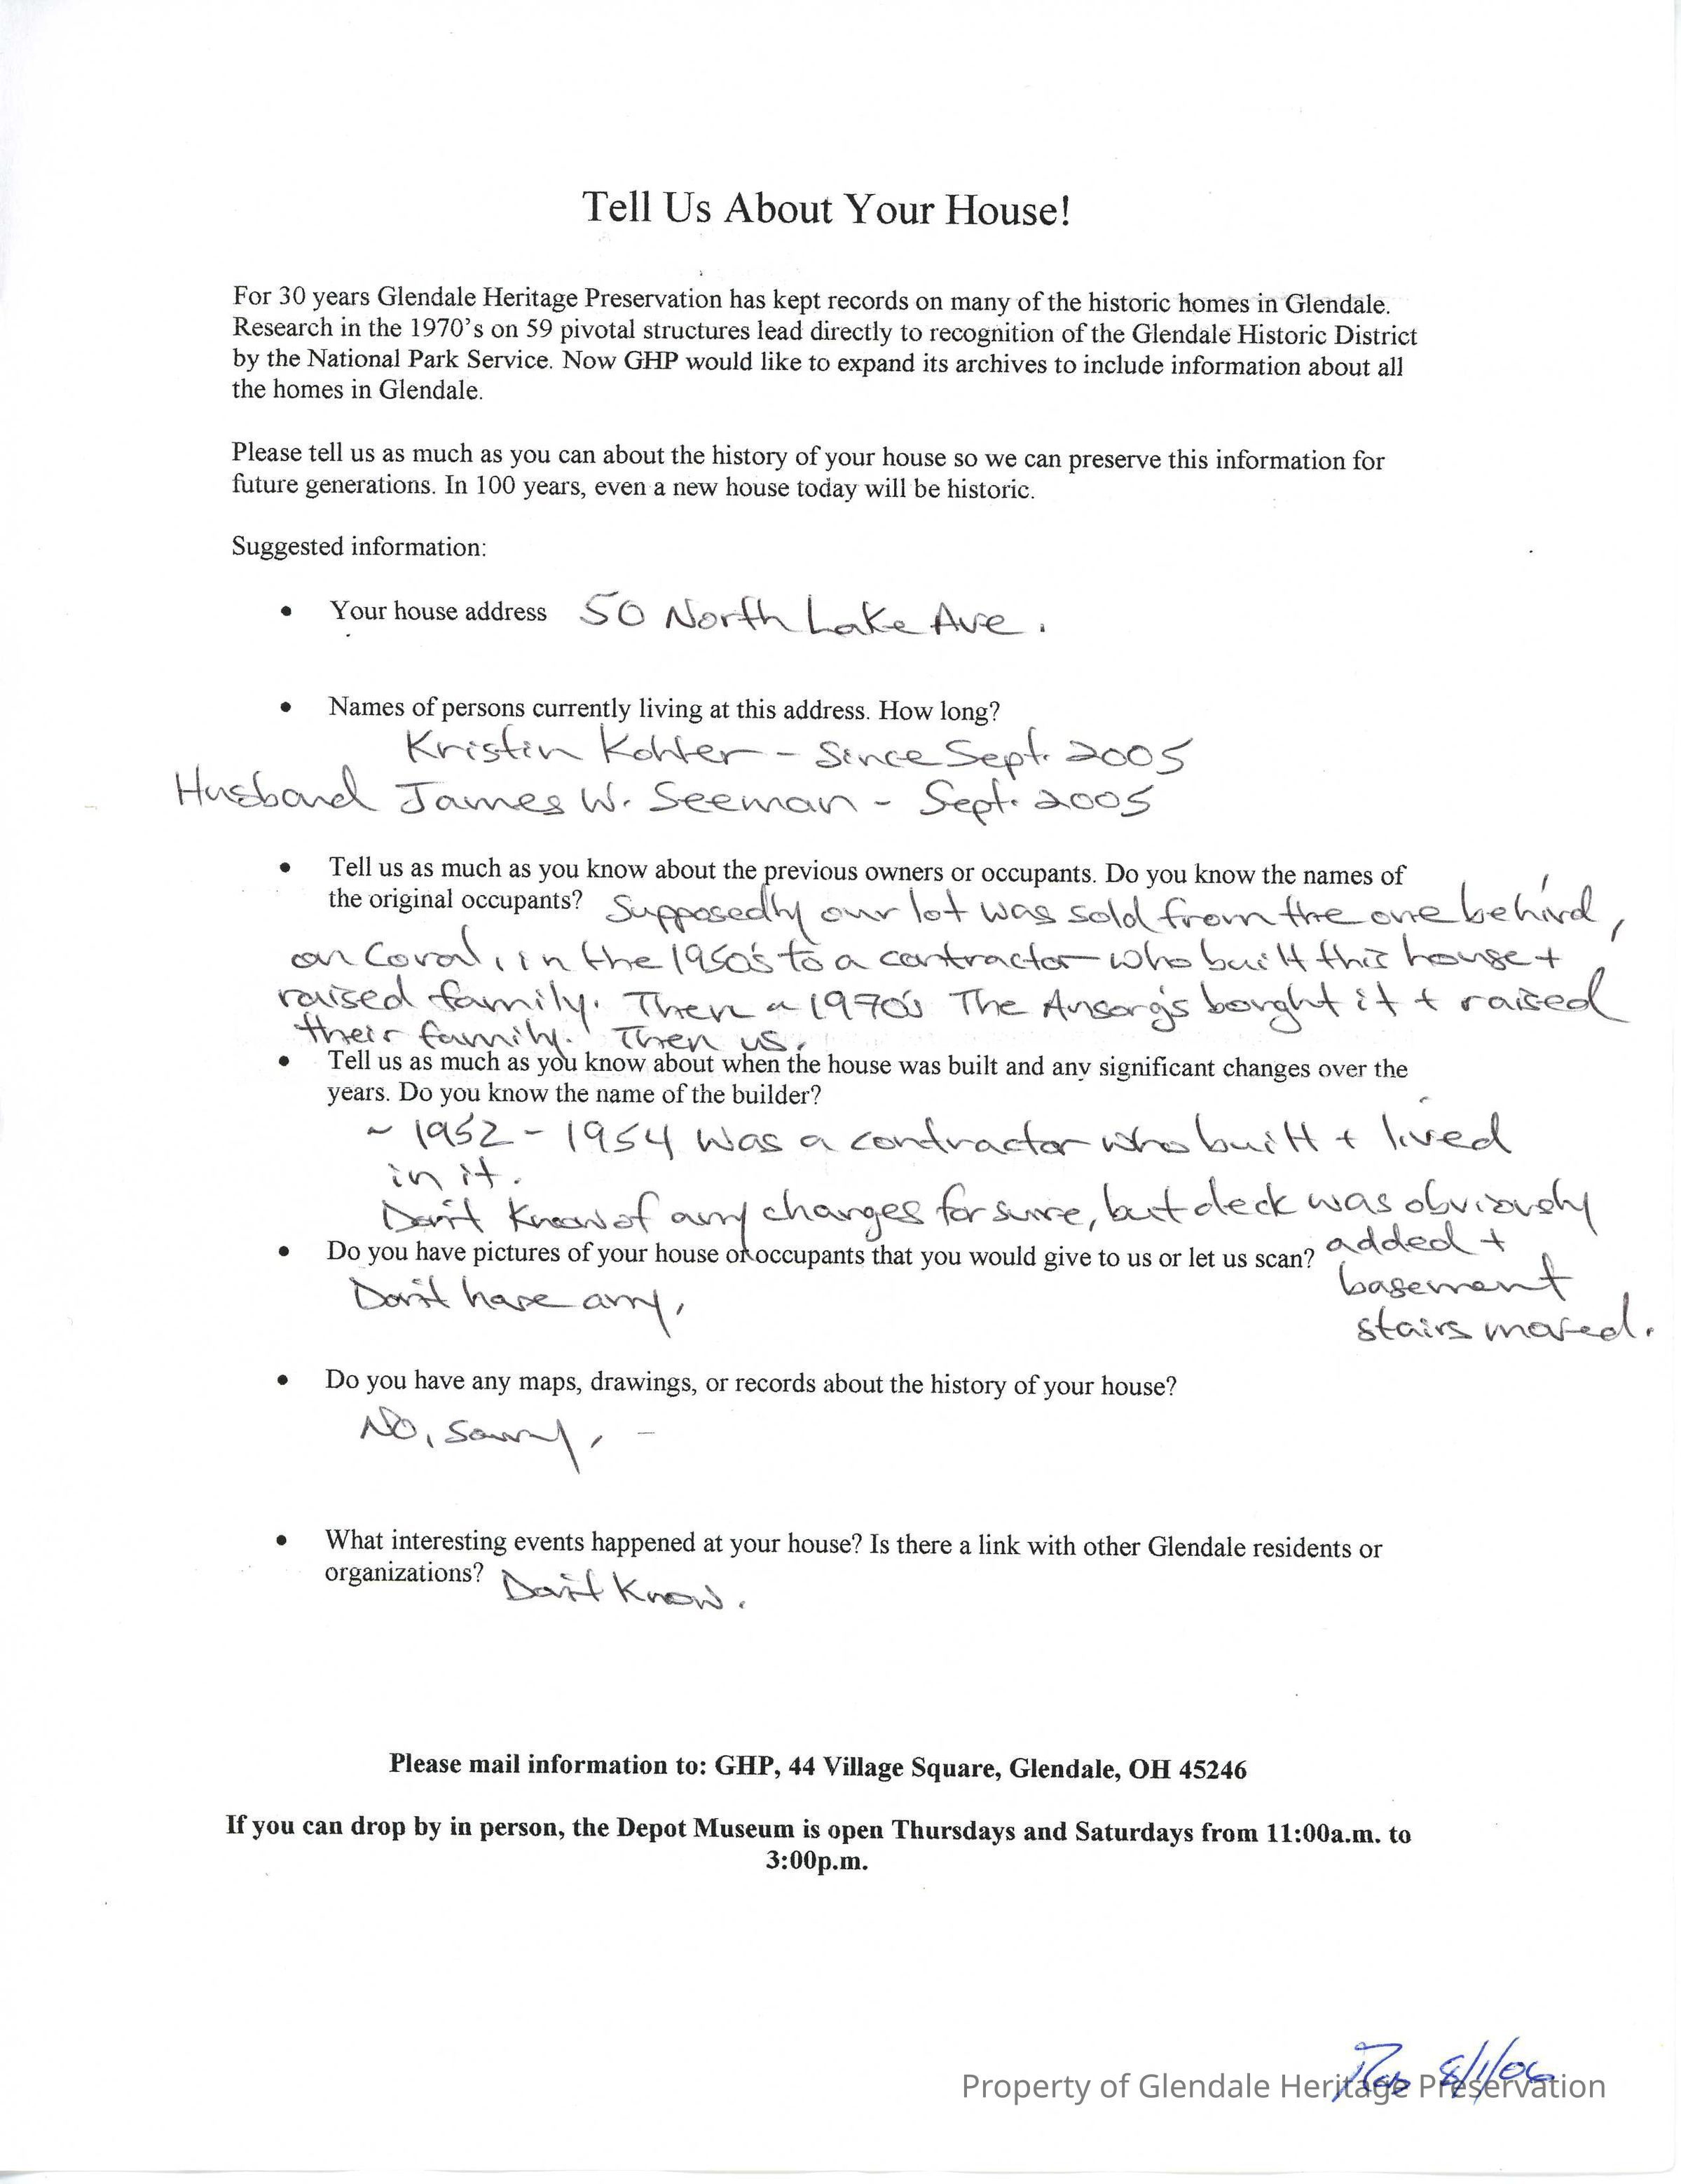 Tell Us About Your House!
For 30 years Glendale Heritage Preservation has kept records on many of the historic homes in Glendale.
Research in the 1970's on 59 pivotal structures lead directly to recognition of the Glendale Historic District
by the National Park Service. Now GHP would like to expand its archives to include information about all
the homes in Glendale.
Please tell us as much as you can about the history of your house so we can preserve this information for
future generations. In 100 years, even a new house today will be historic.
Suggested information:
• Your house address 50 North Lake Ave.
• Names of persons currently living at this address. How long?
Kristin Kohter - Since Sept. 2005
Husband James W. Seeman - Sept. 2005
• Tell us as much as you know about the previous owners or occupants. Do you know the names of
the original occupants? Supposedly our lot was sold from the one behind,
on Coral, in the 1950's to a contractor who built this house +
raised family. Then ~ 1970's The Ansorg's bought it + raised
their family. Then us.
• Tell us as much as you know about when the house was built and any significant changes over the
years. Do you know the name of the builder?
~ 1952 - 1954 Was a contractor who built + lived
in it.
Don't Know of any changes for sure, but deck was obviously
added +
basement
stairs moved.
• Do you have pictures of your house or occupants that you would give to us or let us scan?
Don't have any.
• Do you have any maps, drawings, or records about the history of your house?
No, sorry.
• What interesting events happened at your house? Is there a link with other Glendale residents or
organizations? Don't Know.
Please mail information to: GHP, 44 Village Square, Glendale, OH 45246
If you can drop by in person, the Depot Museum is open Thursdays and Saturdays from 11:00a.m. to
3:00p.m.
8/1/06
Property of Glendale Heritage Preservation